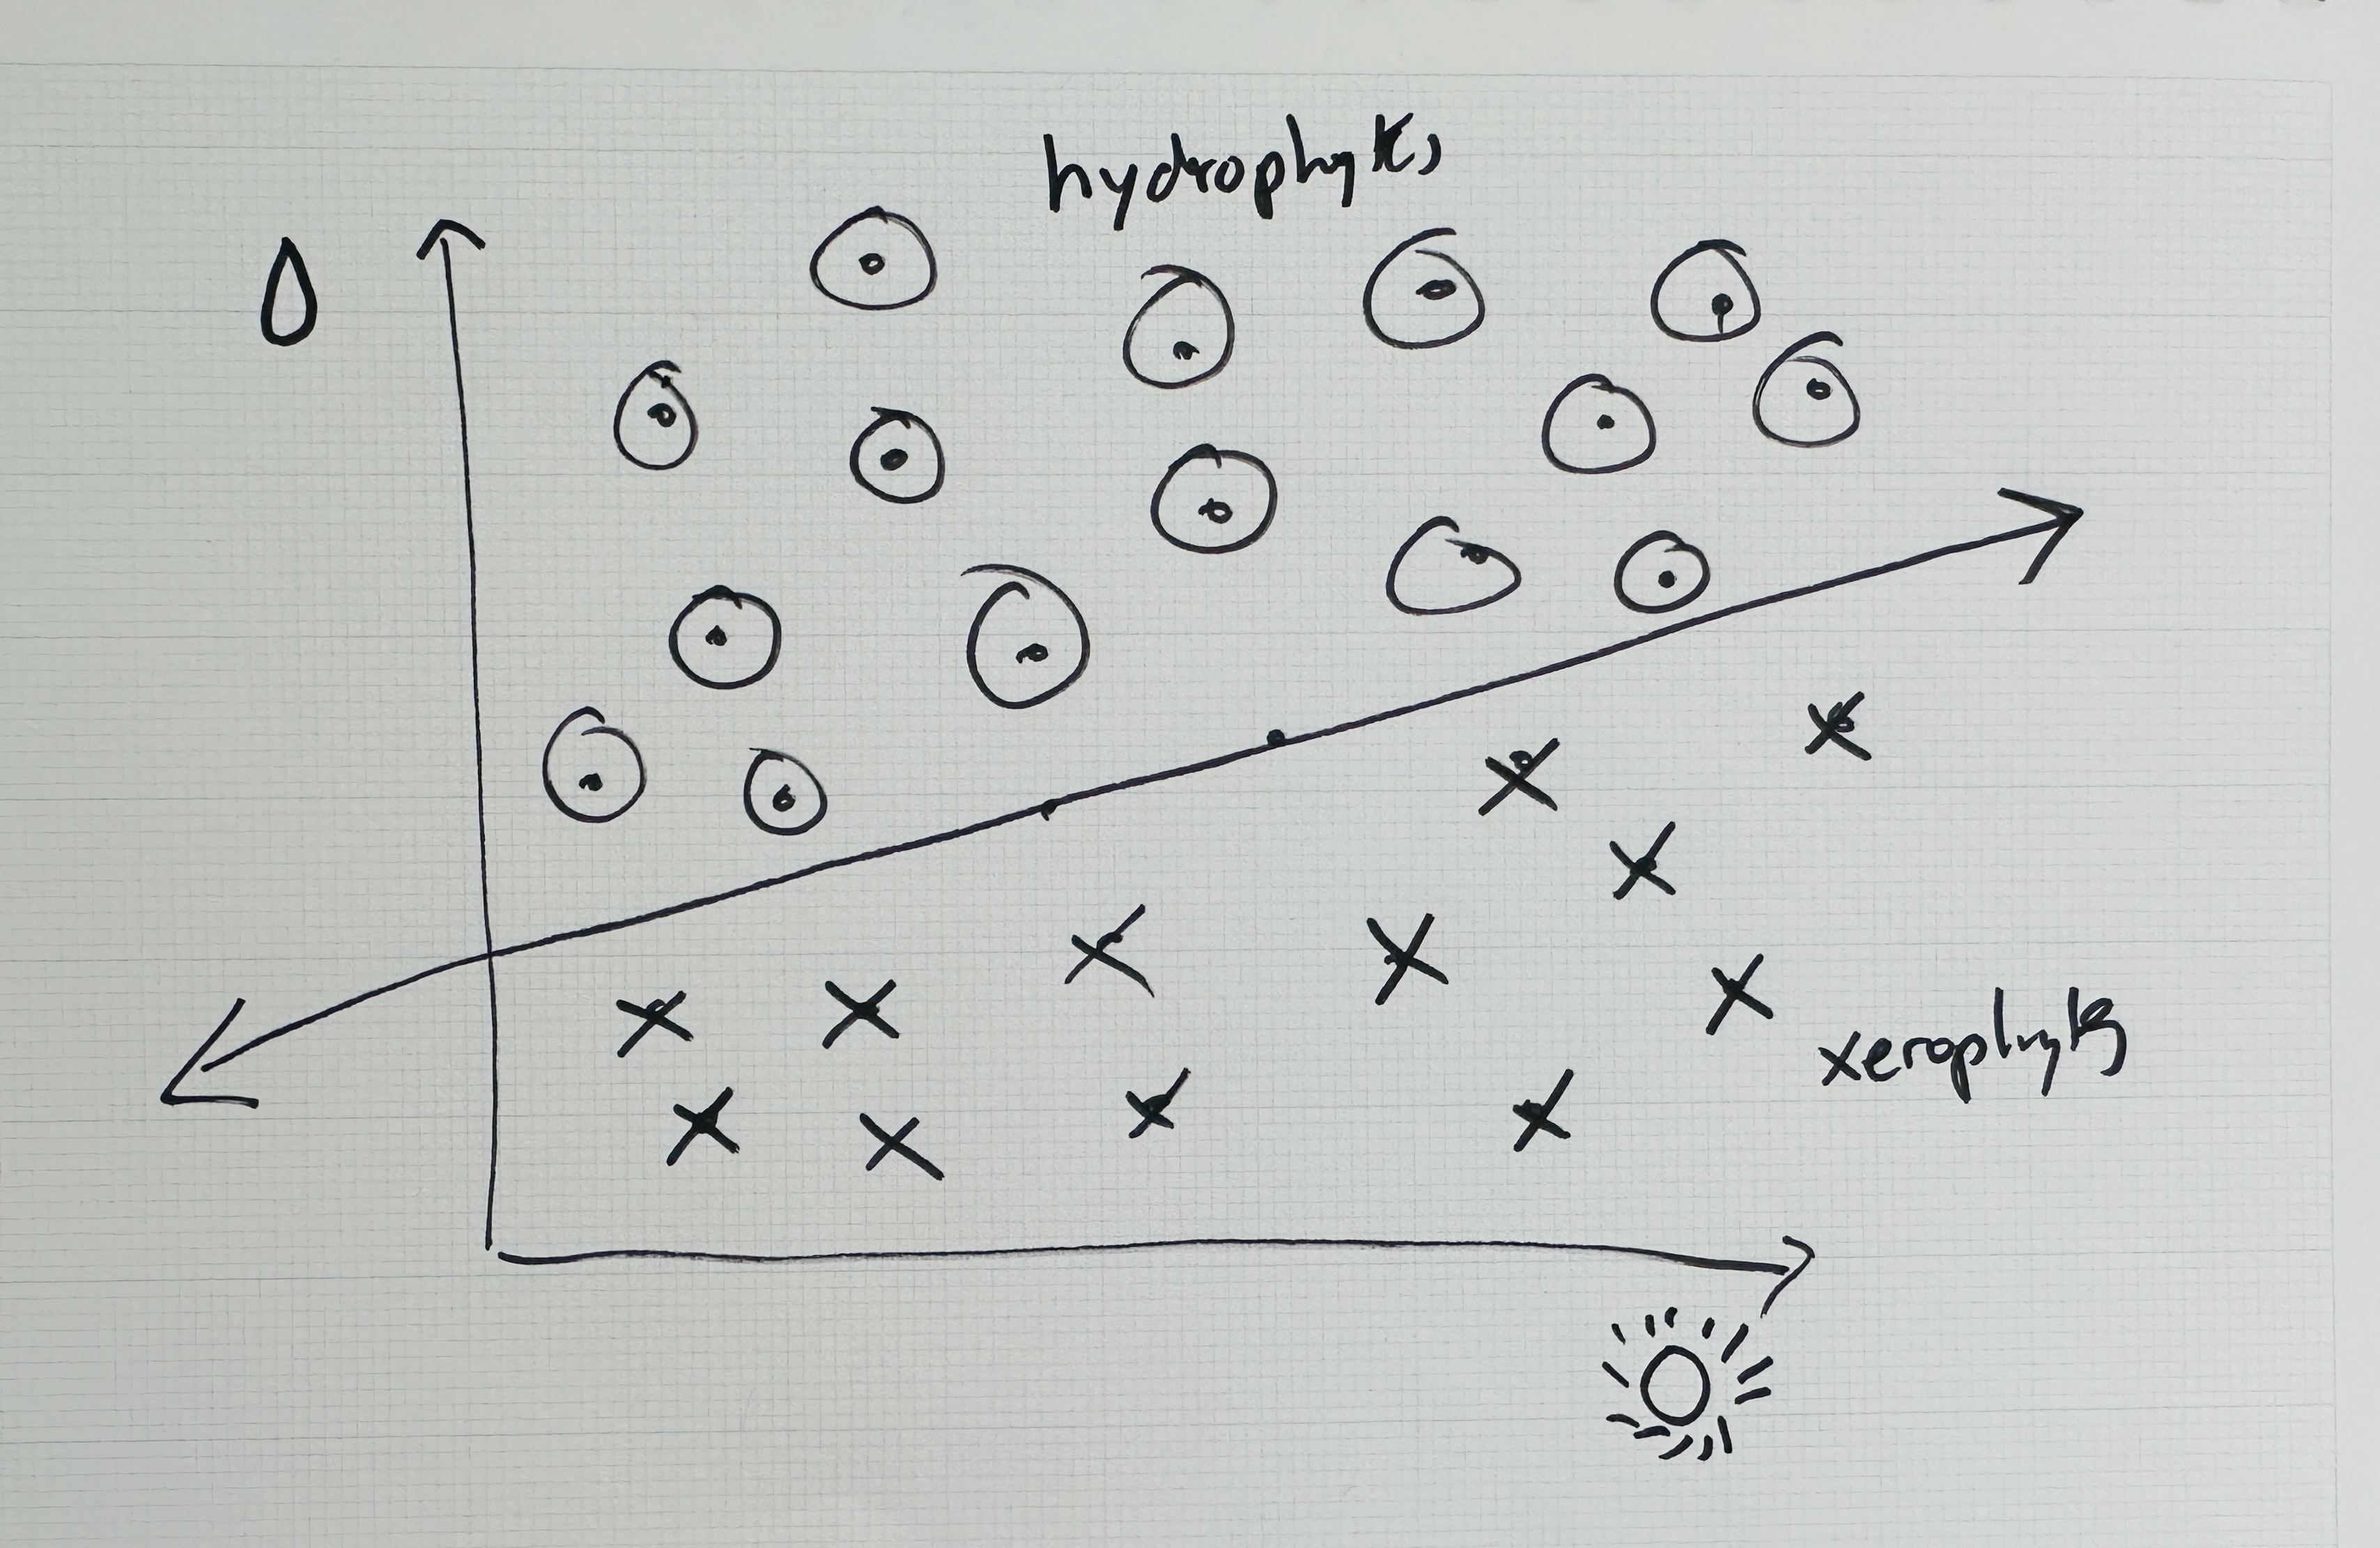 hydrophytes
xerophytes